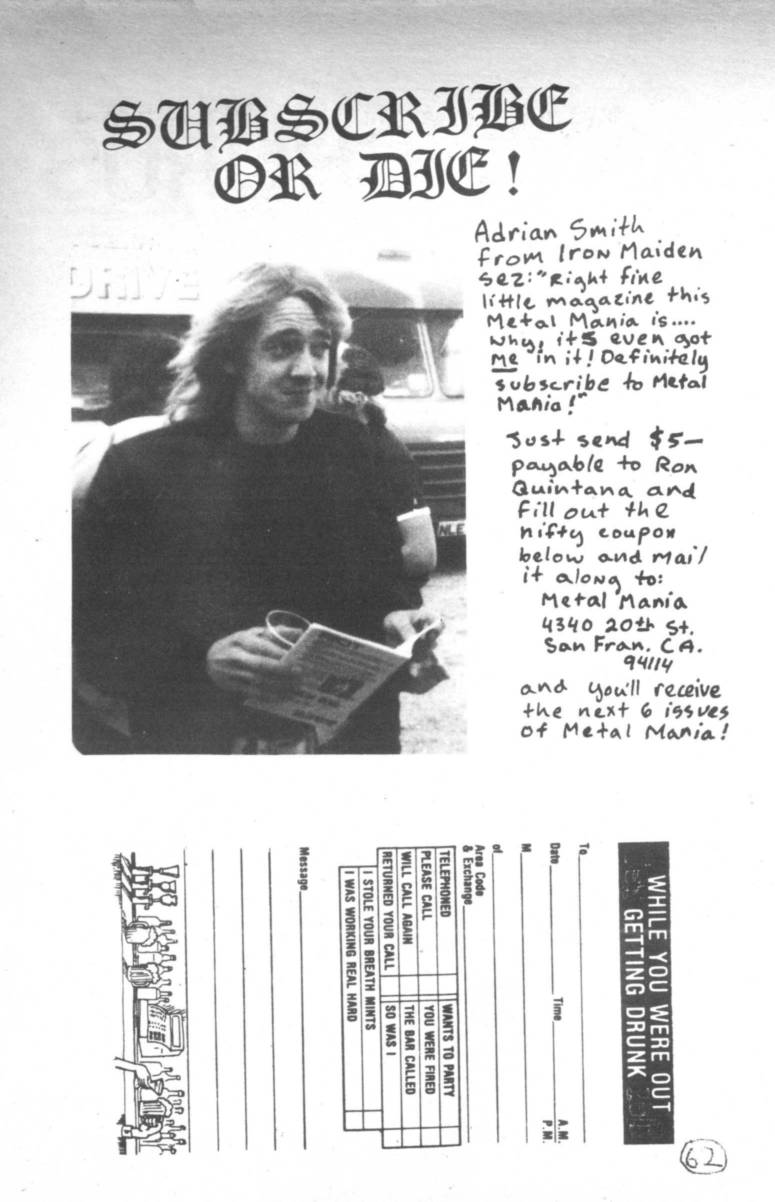 SUBSCRIBE
OR DIE!
DRIVE
NLE
Adrian Smith
from Iron Maiden
sez: "Right fine
little magazine this
Metal Mania is....
Why, it's even got
me in it! Definitely
subscribe to Metal
Mania!"
Just send $5—
payable to Ron
Quintana and
fill out the
nifty coupon
below and mail
it along to:
Metal Mania
4340 20th St.
San Fran. CA.
94114
and you'll receive
the next 6 issues
of Metal Mania!
WHILE YOU WERE OUT
GETTING DRUNK
To
Date Time A.M.
P.M.
M
of
Area Code
& Exchange
TELEPHONED WANTS TO PARTY
PLEASE CALL YOU WERE FIRED
WILL CALL AGAIN THE BAR CALLED
RETURNED YOUR CALL SO WAS I
I STOLE YOUR BREATH MINTS
I WAS WORKING REAL HARD
Message
62